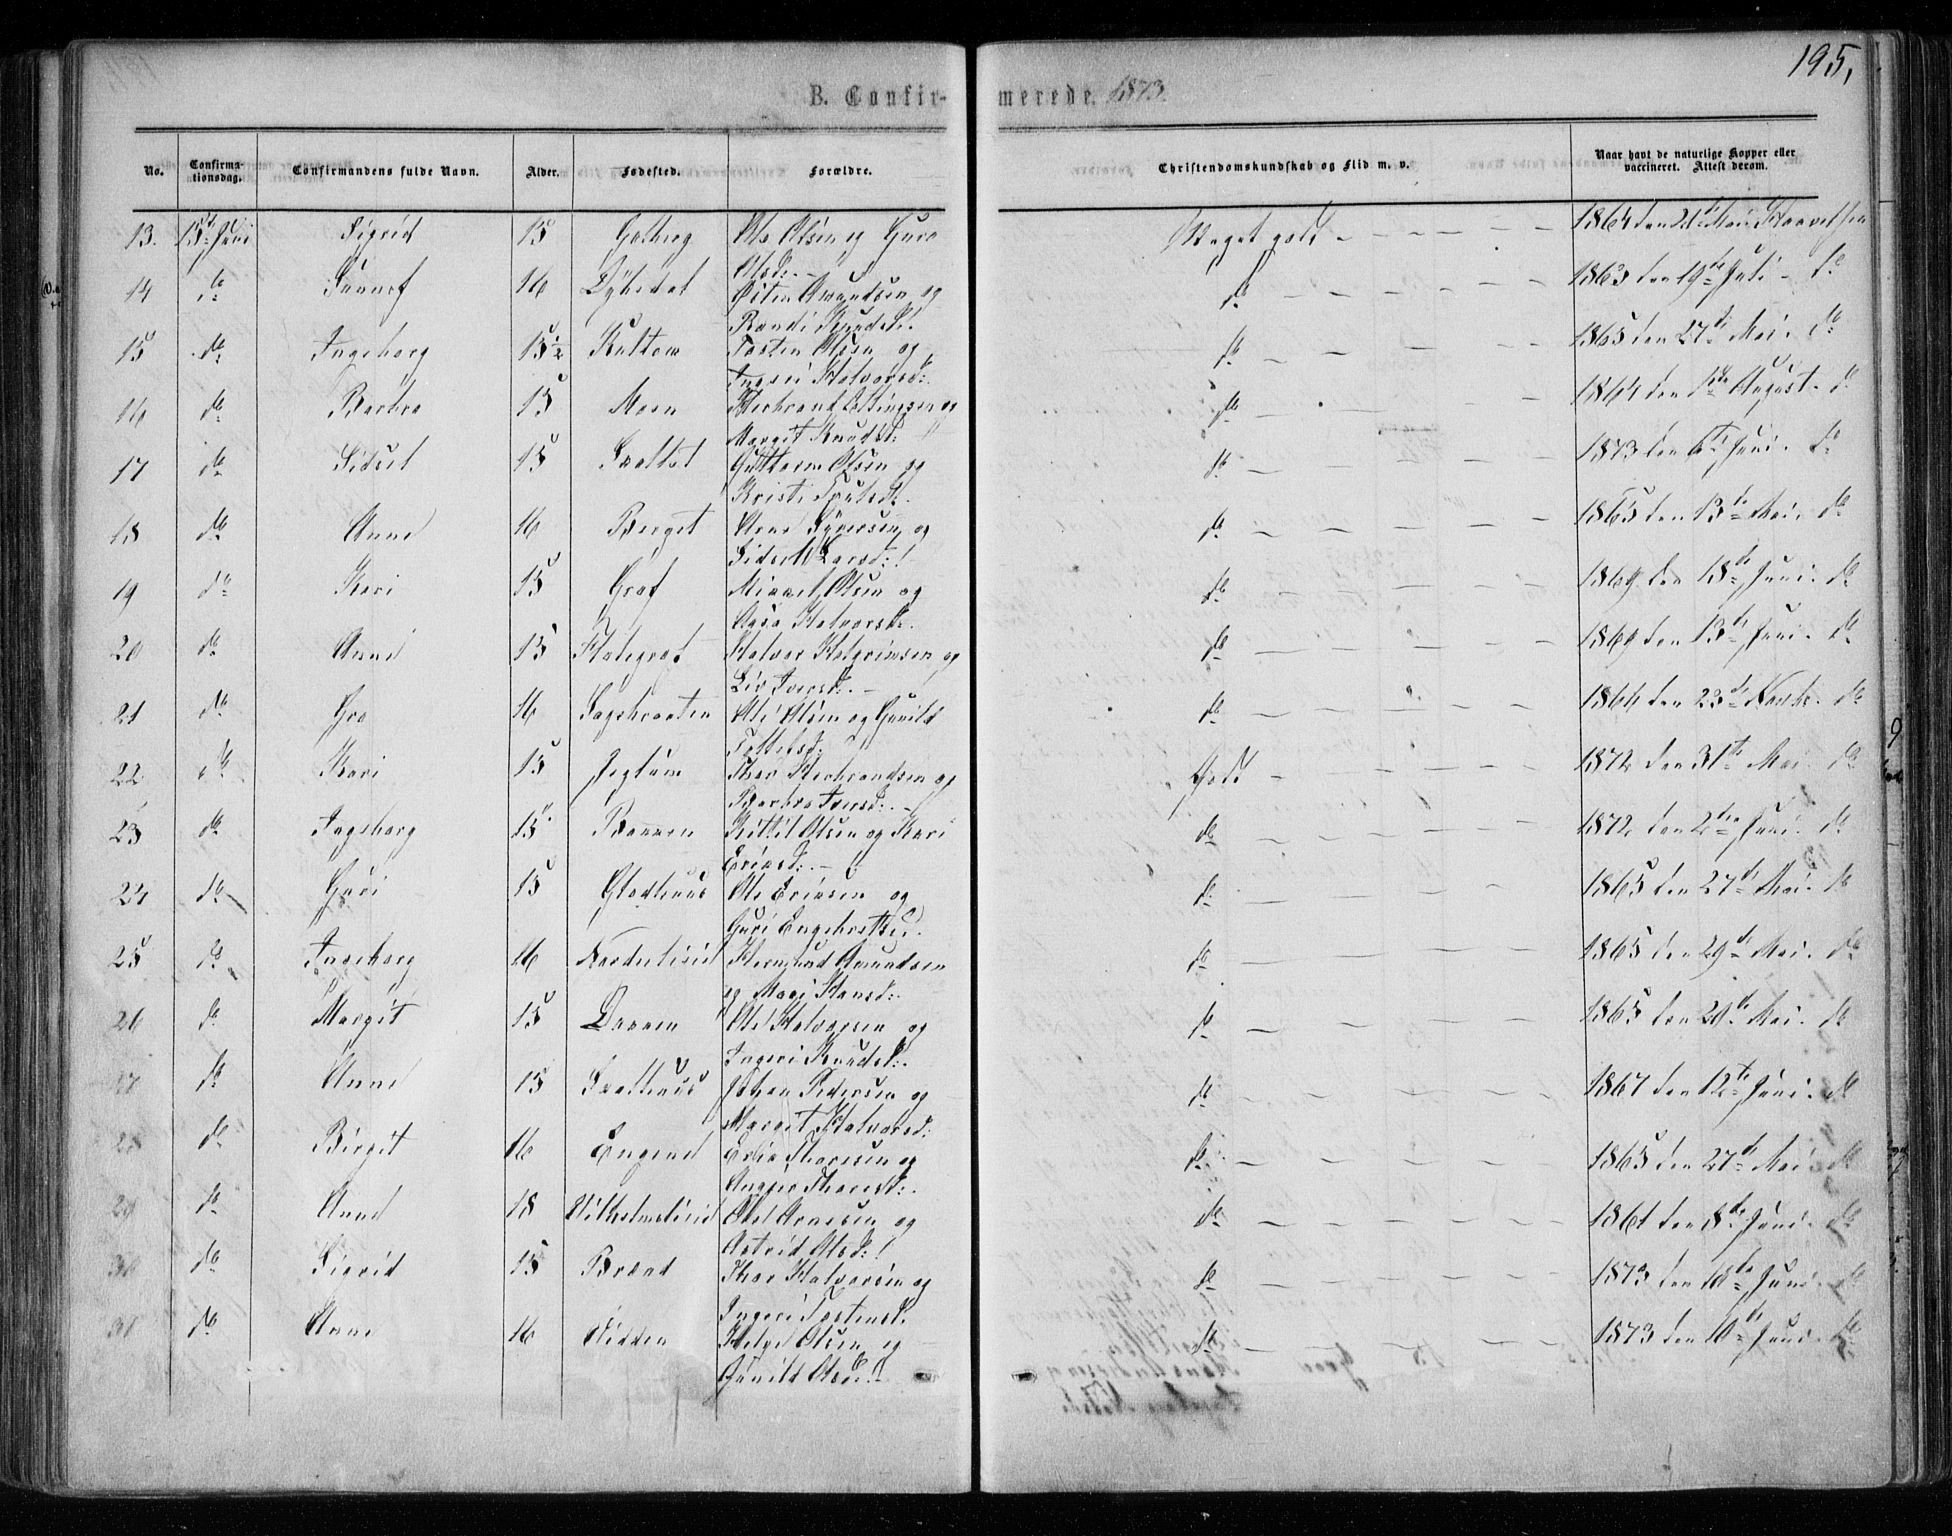 195,
B. Confir- merede. 1873.
No. Confirma- Confirmandens fulde Navn. Alder. Fødested. Forældre. Christendomskundskab og Flid m. v. Naar havt de naturlige Kopper eller
tionsdag. vaccineret. Attest derom.
13. 15de Juni Sigrid 15 Golberg Ole Olsen og Guro Meget godt 1864 den 21de Mai
Olsd:
14 do 16 Østen Amundsen og do 1863 den 19de Juli do
Randi Knudsd:
15 do Ingeborg 15 1/2 Tosten Olsen og do 1865 den 27de Mai. do
Ingeri Halvorsd:
16 do Barbro 15 Moen Herbrand og do 1864 den 1ste August. do
Margit Knudsd:
17 do Sidsel 15 Guttorm Olsen og do 1873 den 6te Juni. do
Kristi
18 do Anne 16 Berget Arne Syversen og do 1865 den 13de Mai. do
Sidsel Larsd:
19 do Kari 15 Grøf Mikkel Olsen og do 1869 den 18de Juni. do
Aase Halvorsd:
20 do Anne 15 Halvor Helgeimsen og do 1869 den 13de Juni. do
Liv Iversd:
21 do Gro 16 Sagabraaten Ole Olsen og Gunild do 1866 den 23de Novbr. do
22 do Kari 15 Thor Herbrandsen og Godt 1872 den 31te Mai. do
Barbro Iversd:
23 do Ingeborg 15 Bakken Kittil Olsen og Kari do 1872 den 2den Juni. do
Eriksd:
24 do Guri 15 Gladhuus Ole Eriksen og do 1865 den 27de Mai. do
Guri Engebretsd.
25 do Ingeborg 16 Nordrelien Hermund Amundsen do 1865 den 29de Mai. do
og Mari Hansd:
26 do Margit 15 Dokken Ole Halvorsen og do 1865 den 20de Mai. do
Ingeri Knudsd:
27 do Anne 15 Johan Pedersen og do 1867 den 12te Juni. do
Margit Halvorsd:
28 do Birgit 16 Engene Erik Thoresen og do 1865 den 27de Mai do
29 do Anne 18 Vilhelmslien Ole Arnesen og do 1861 den 8de Juni. do
Astrid Olsd:
30 do Sigrid 15 Thor Halvorsen og do 1873 den 10de Juni do
Ingeri Tostensd.
31 do Anne 16 Helge Olsen og do 1873 den 10de Juni. do
Gunild Olsd: